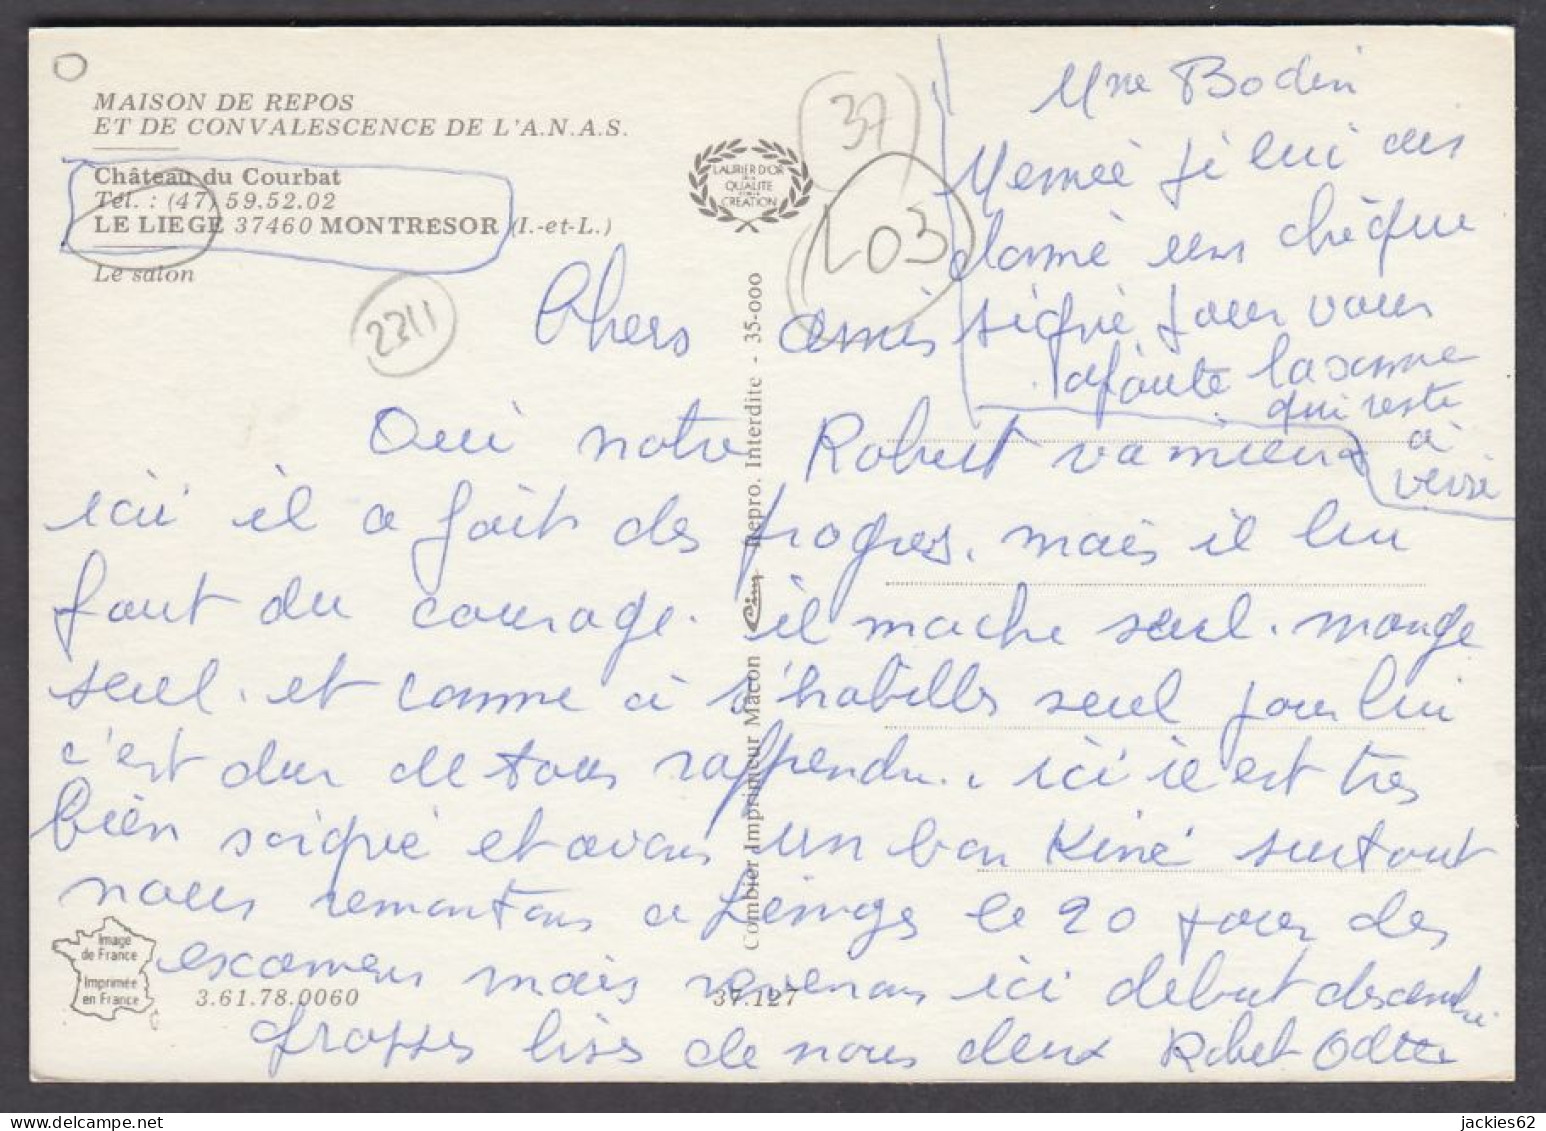 MAISON DE REPOS
ET DE CONVALESCENCE DE L'A.N.A.S.
Château du Courbat
Tél. : (47) 59.52.02
LE LIEGE 37460 MONTRESOR (I.-et-L.)
Le salon
37
L03
2211
LAURIER D'OR
DE LA
QUALITE
CREATION
Combier Imprimeur Macon Cim Repro. Interdite - 35-000
Mme Bodin
Memée je lui ai
donné un chèque
signé pour vous
ajouté la somme
qui reste
à
Chers amis
Oui notre Robert va mieux
ici il a fait des progres. mais il lui
faut du courage. il mache seul. mange
seul. et comme à s'habille seul pour lui
c'est dur de tous rappendre. ici il est tres
bien soigné et avons un bon Kiné surtout
nous remontons a le 20 pour des
examens mais revenons ici debut descembre
Grosses bises de nous deux Robert Odette
Image
de France
Imprimée
en France
3.61.78.0060
37.127
jackies62